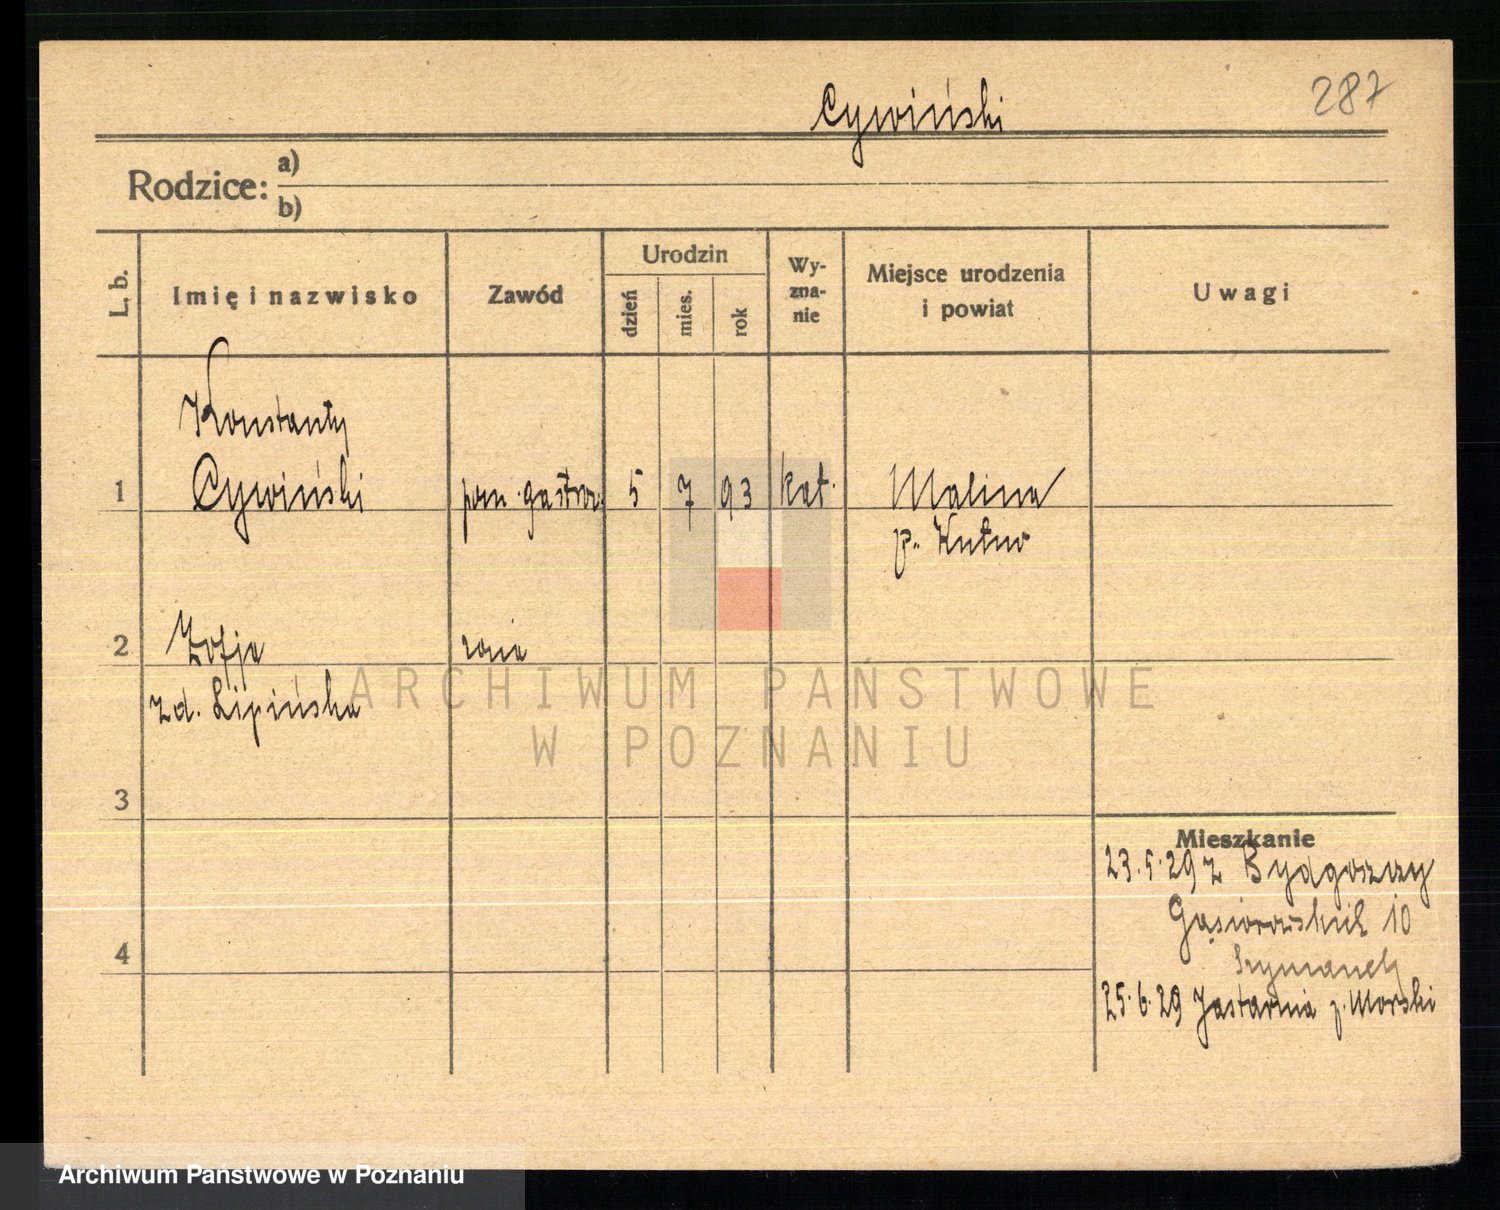 287
Cywiński
Rodzice: a)
b)
L. b.
Imię i nazwisko
Zawód
Urodzin
dzień
mies.
rok
Wy-
zna-
nie
Miejsce urodzenia
i powiat
Uwagi
Konstanty
1 Cywiński pom. gastron. 5 7 93 kat. Malina
p. Kutno
2 Zofja żona
zd. Lipińska
3
Mieszkanie
23.5.29 z Bydgoszczy
Gąsiorowskich 10
4
Szymanek
25.6.29 Jastarnia p. Morski
ARCHIWUM PAŃSTWOWE
W POZNANIU
Archiwum Państwowe w Poznaniu